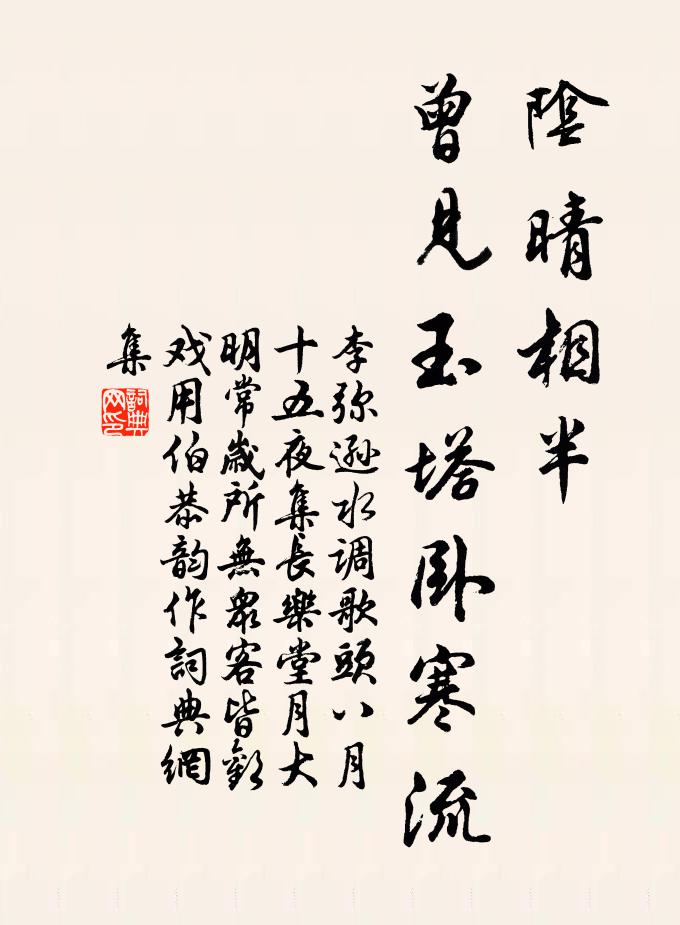 陰晴相半
曾見玉塔卧寒流
李弥遜水調歌頭八月
十五夜集長樂堂月大
明常歲所無衆客皆歡
戏用伯恭韵作詞典網
集
詞典
网印